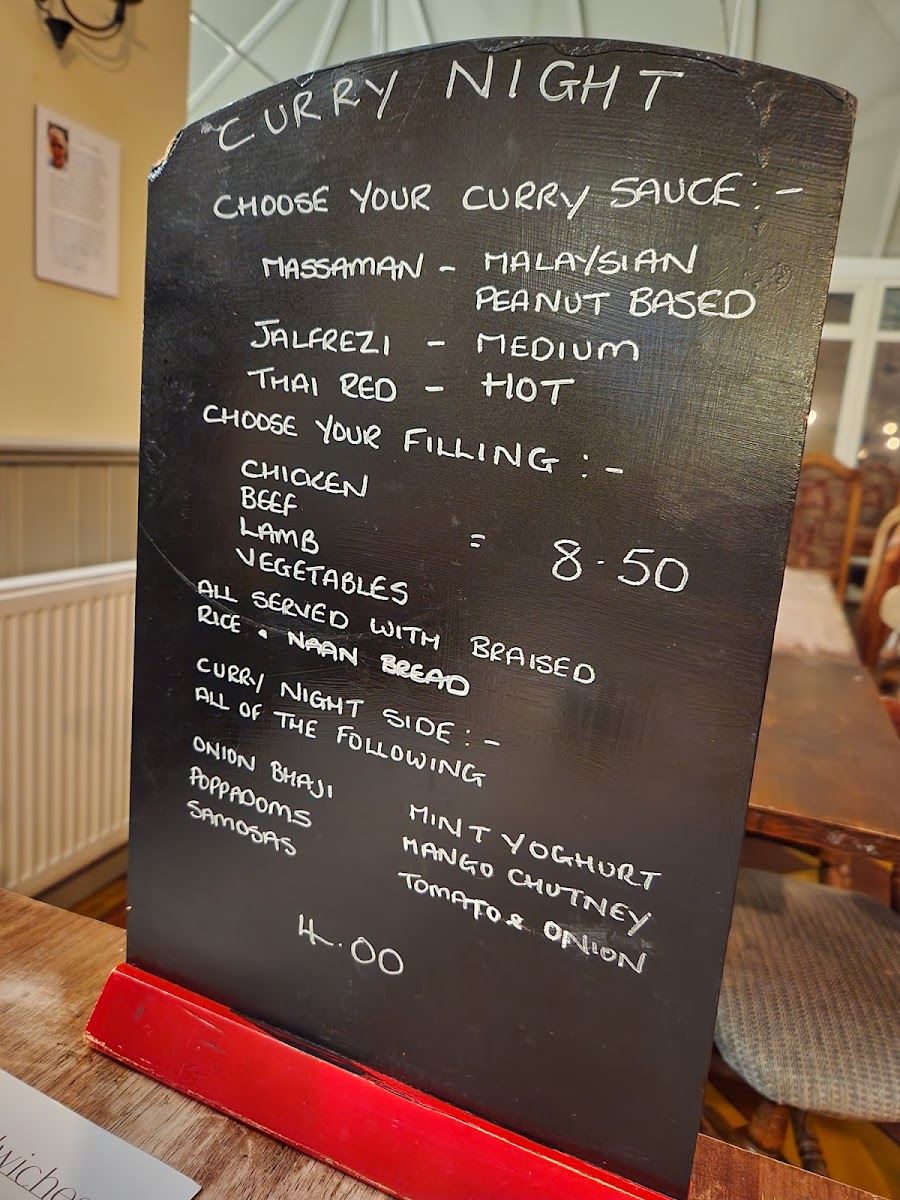 CURRY NIGHT
CHOOSE YOUR CURRY SAUCE:-
MASSAMAN - MALAYSIAN
PEANUT BASED
JALFREZI - MEDIUM
THAI RED - HOT
CHOOSE YOUR FILLING :-
CHICKEN
BEEF
LAMB
VEGETABLES
= 8.50
ALL SERVED WITH BRAISED
RICE & NAAN BREAD
CURRY NIGHT SIDE:-
ALL OF THE FOLLOWING
ONION BHAJI
POPPADOMS
SAMOSAS
MINT YOGHURT
MANGO CHUTNEY
TOMATO & ONION
4.00